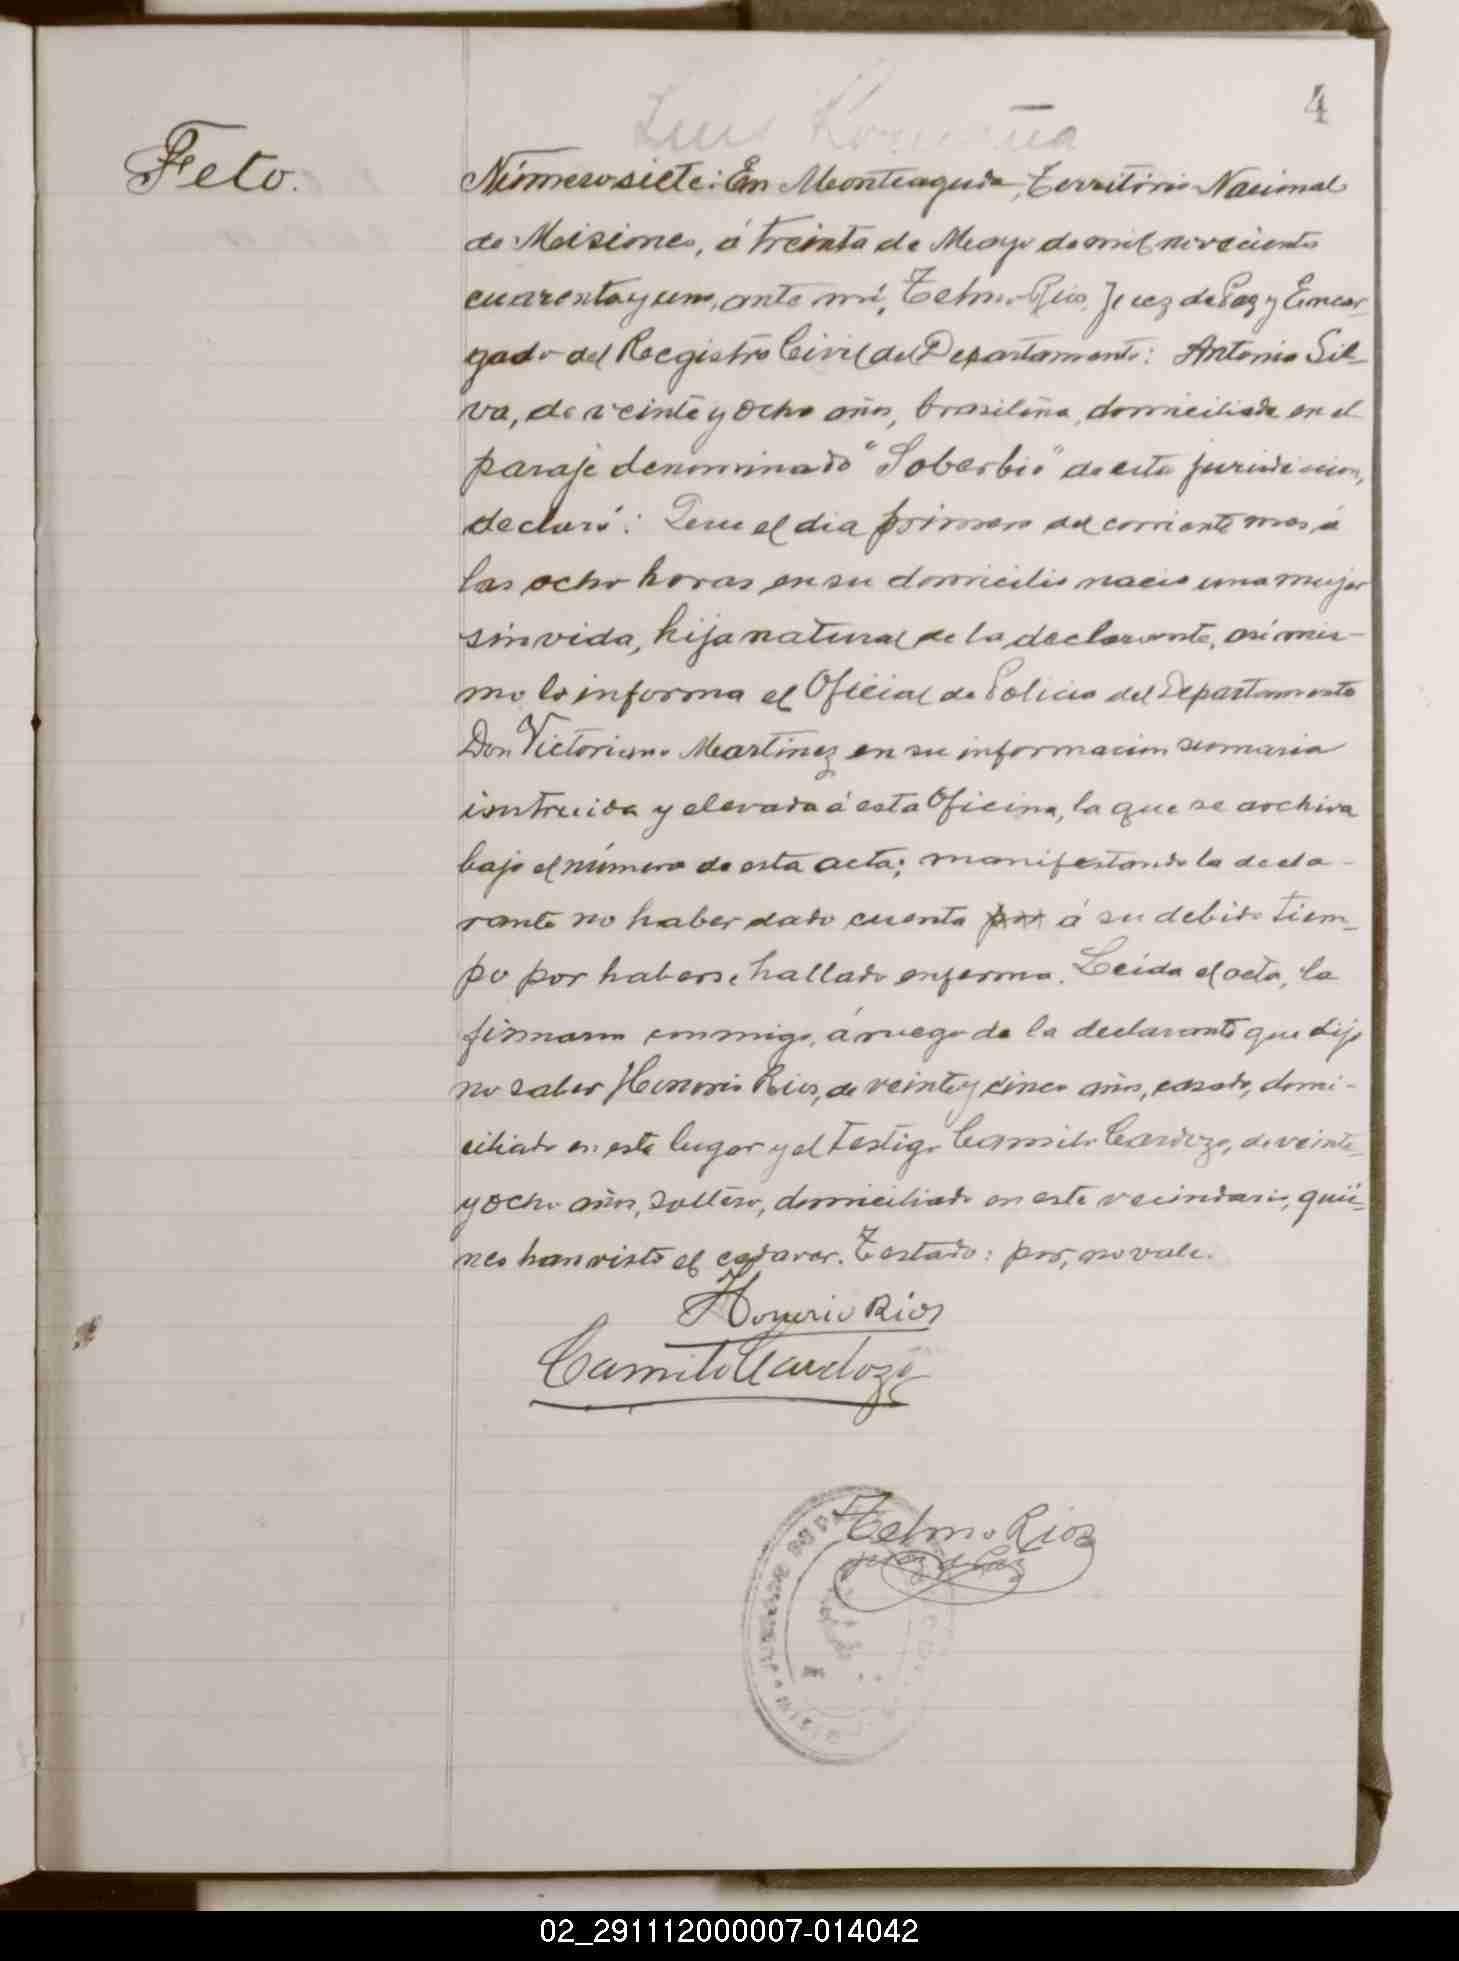 4
Feto.
Número siete: En Monteagudo, Territorio Nacional
de Misiones, á treinta de Mayo de mil novecientos
cuarenta y uno, ante mí, Telmo Rios, Juez de Paz y Encar-
gado del Registro Civil del Departamento: Antonia Sil-
va, de veinte y ocho años, brasileña, domiciliada en el
paraje denominado "Soberbio" de esta jurisdiccion,
declaró: Que el dia primero del corriente mes á
las ocho horas en su domicilio nacio una mujer
sin vida, hija natural de la declarante, asi mis-
mo lo informa el Oficial de Policia del Departamento
Don Victoriano Martinez en su informacion sumaria
instruida y elevada á esta Oficina, la que se archiva
bajo el número de esta acta; manifestando la decla-
rante no haber dado cuenta por á su debido tiem-
po por haberse hallado enferma. Leida el acta, la
firmaron conmigo, á ruego de la declarante que dijo
no saber Honorio Rios, de veinte y cinco años, casado, domi-
ciliado en este lugar y el testigo Camilo Cardozo, de veinte
y ocho años, soltero, domiciliado en este vecindario, quie-
nes han visto el cadaver. Testado: por, no vale.
Honorio Rios
Camilo Cardozo
Telmo Rios
Juez de Paz
02_291112000007-014042